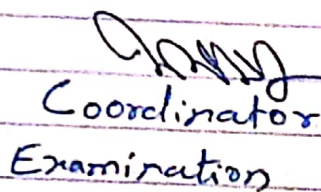 Coordinator
Examination